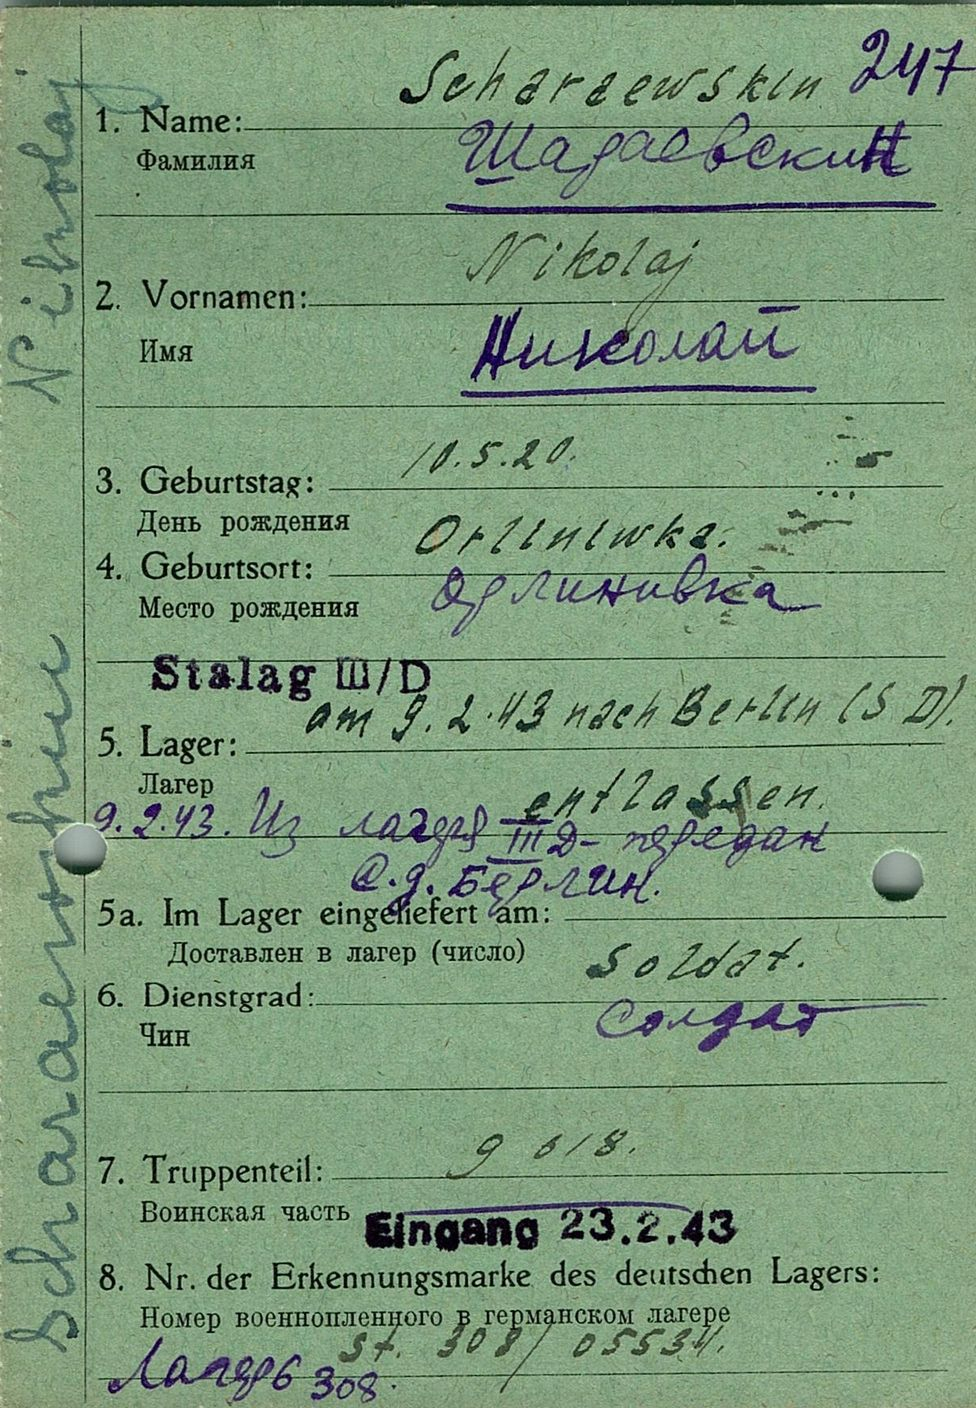 247
Scharaewskin
1. Name:
Фамилия
Шадаевский
Nikolaj
2. Vornamen:
Имя
Николай
10.5.20.
3. Geburtstag:
День рождения
Orliniwka.
4. Geburtsort:
Место рождения
Орлиновка
Stalag III/D
am 9.2.43 nach Berlin (S D).
5. Lager:
Лагер
entlassen.
9.2.43. Из лагеря III Д- передан
С.д. Берлин.
5a. Im Lager eingeliefert am:
Доставлен в лагер (число)
Soldat.
6. Dienstgrad:
Чин
Солдат
7. Truppenteil:
Воинская часть
Eingang 23.2.43
8. Nr. der Erkennungsmarke des deutschen Lagers:
Номер военнопленного в германском лагере
St. 308/05534.
Лагерь 308.
Scharaewskin Nikolaj